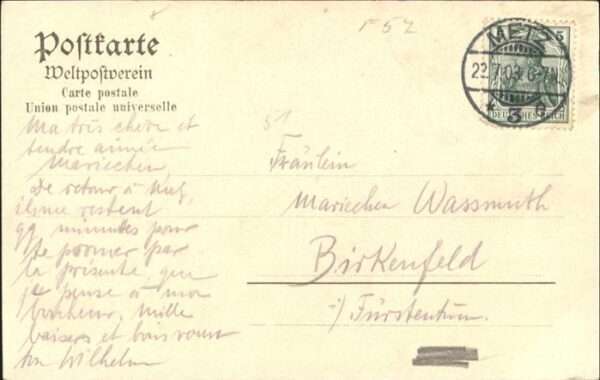 Postkarte
Weltpostverein
Carte postale
Union postale universelle
r 52
51
METZ
22.7.09. 6-7N
* 3 o
5
DEUTSCHES REICH
Ma très chère et
tendre aimée
Mariechen,
De retour à Metz,
il me restent
minutes pour
te prouver par
la présente, que
je pense à mon
bonheur. Mille
baisers et
ton Wilhelm
Fräulein
Mariechen Wassmuth
Birkenfeld
Fürstentum.